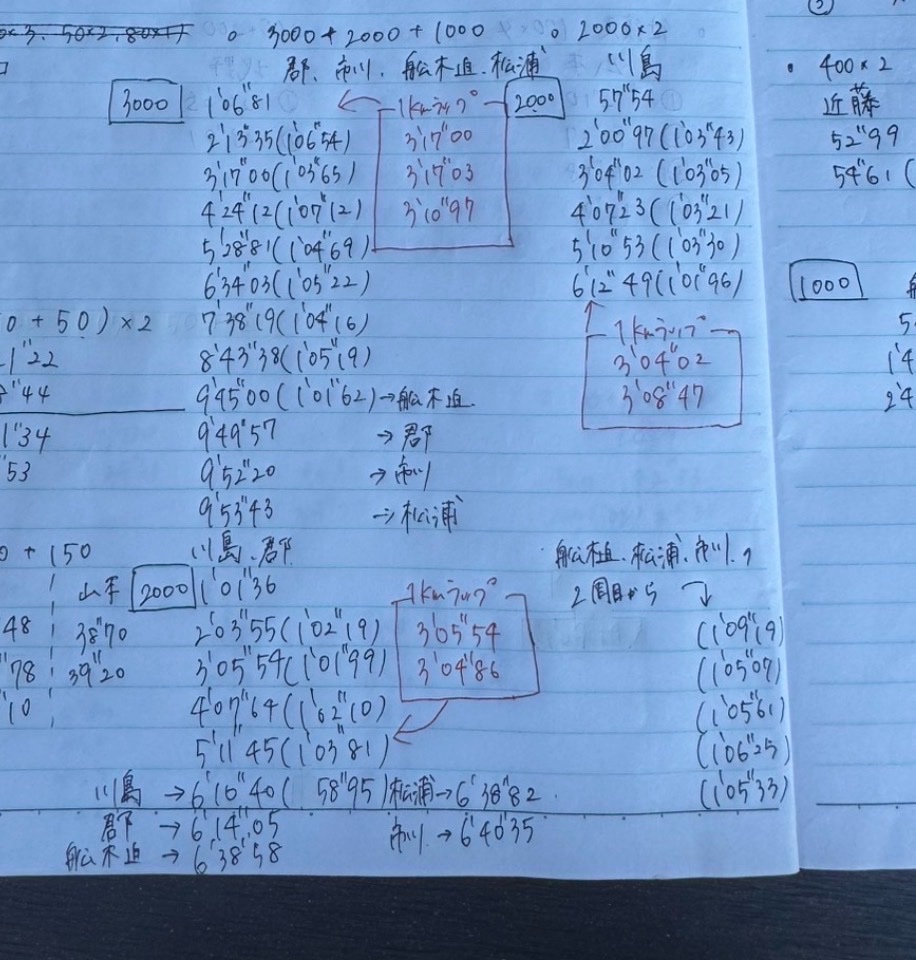 3000+2000+1000
郡、市川、舩木迫、松浦
3000
1'06"81
2'13"35(1'06"54)
3'17"00(1'03"65)
4'24"12(1'07"12)
5'28"81(1'04"69)
6'34"03(1'05"22)
7'38"19(1'04"16)
8'43"38(1'05"19)
9'45"00(1'01"62)→舩木迫
9'49"57 →郡
9'52"20 →市川
9'53"43 →松浦
1kmラップ
3'17"00
3'17"03
3'10"97
2000×2
川島
2000
57"54
2'00"97(1'03"43)
3'04"02(1'03"05)
4'07"23(1'03"21)
5'10"53(1'03"30)
6'12"49(1'01"96)
1kmラップ
3'04"02
3'08"47
川島、郡
2000
1'01"36
2'03"55(1'02"19)
3'05"54(1'01"99)
4'07"64(1'02"10)
5'11"45(1'03"81)
川島→6'10"40(58"95)
郡→6'14"05
舩木迫→6'38"58
松浦→6'38"82
市川→6'40"35
1kmラップ
3'05"54
3'04"86
松浦、市川、
2周目から
(1'09"19)
(1'05"07)
(1'05"61)
(1'06"25)
(1'05"33)
+50)×2
1"22
"44
1"34
"53
+150
48
"78
"10
山本
38"70
39"20
400×2
近藤
52"99
54"61(
1000